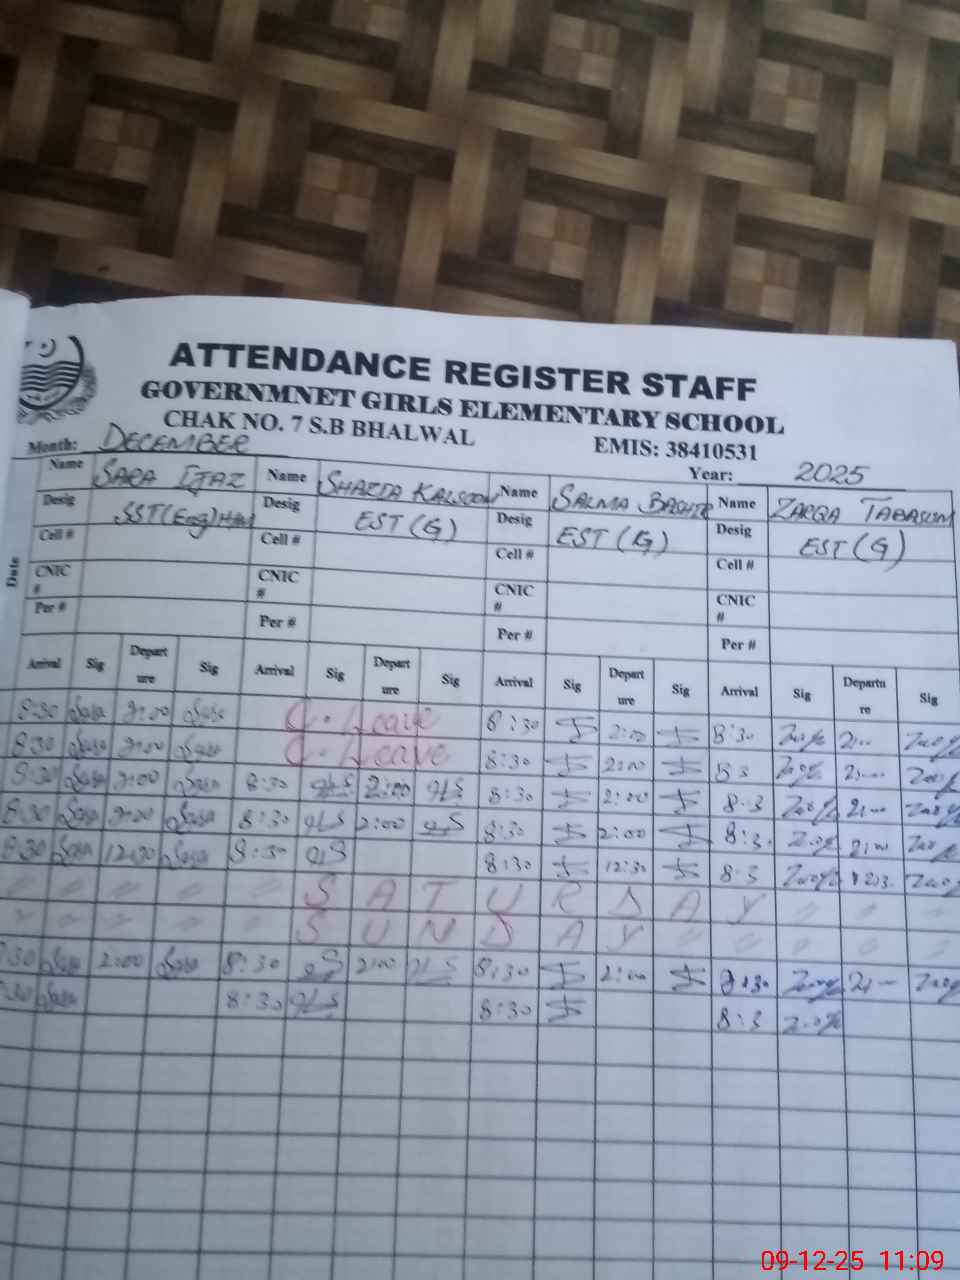 ATTENDANCE REGISTER STAFF
GOVERNMNET GIRLS ELEMENTARY SCHOOL
CHAK NO. 7 S.B BHALWAL EMIS: 38410531
Month: DECEMBER Year: 2025
Name SARA IJAZ Name SHAZIA KALSOOM Name SALMA BASHIR Name ZARQA TABASUM
Desig SST(Eng)H/M Desig EST(G) Desig EST(G) Desig EST(G)
Cell # Cell # Cell # Cell #
Date
CNIC # CNIC # CNIC # CNIC #
Per # Per # Per # Per #
Arrival Sig Departure Sig Arrival Sig Departure Sig Arrival Sig Departure Sig Arrival Sig Departure Sig
8:30 Sara 2:00 Sara C. Leave 8:30 2:00 8:30 2:00
8:30 Sara 2:00 Sara C. Leave 8:30 2:00 8:3 2:00
8:30 Sara 2:00 Sara 8:30 2:00 8:30 2:00 8:3 2:00
8:30 Sara 2:00 Sara 8:30 2:00 8:30 2:00 8:3 2:00
8:30 Sara 12:30 Sara 8:30 8:30 12:30 8:3
SATURDAY
SUNDAY
:30 Sara 2:00 Sara 8:30 2:00 8:30 2:00 8:30
:30 Sara 8:30 8:30 8:3
09-12-25 11:09